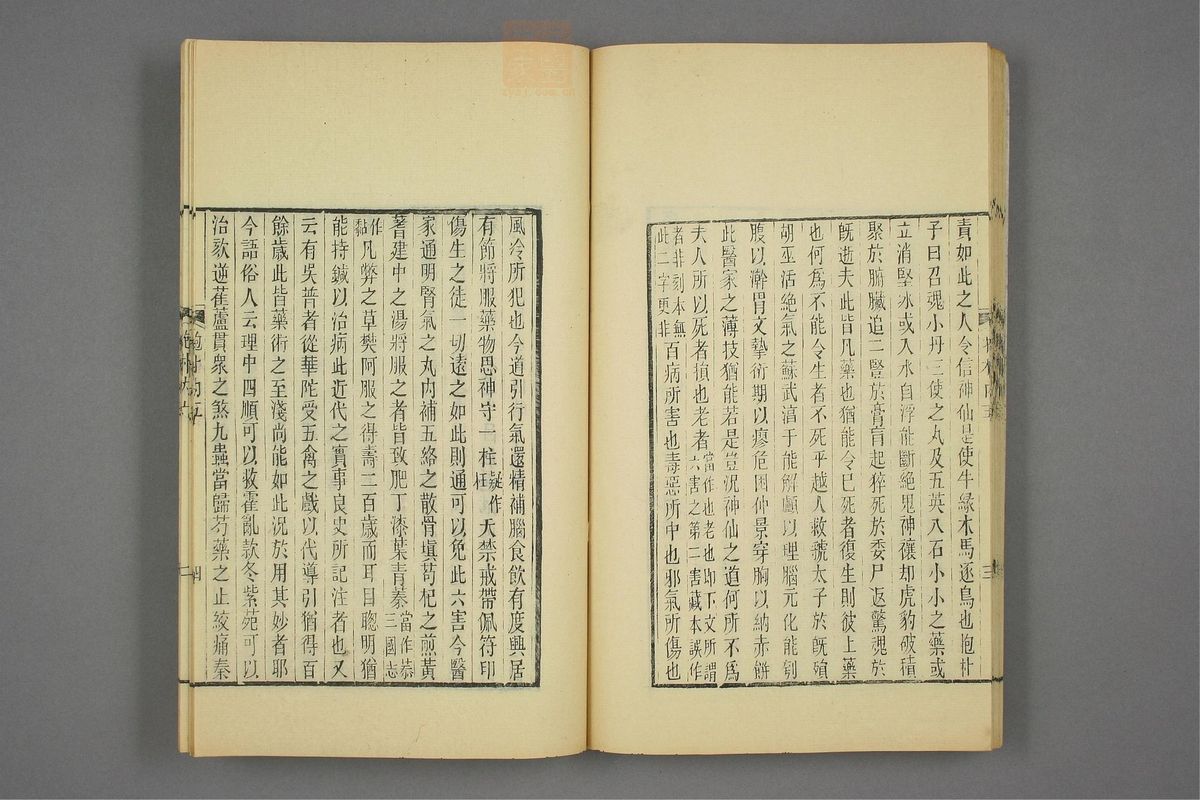 責如此之人令信神仙是使牛緣木馬逐鳥也抱朴
子曰召魂小丹三使之丸及五英八石小小之藥或
立消堅冰或入水自浮能斷絕鬼神禳却虎豹破積
聚於腑臟追二豎於膏肓起猝死於委尸返驚魂於
旣逝夫此皆凡藥也猶能令已死者復生則彼上藥
也何爲不能令生者不死乎越人救虢太子於旣殞
胡巫活絕氣之蘇武淳于能解顱以理腦元化能刳
腹以澣胃文摯衍期以瘳危困仲景穿胸以納赤餅
此醫家之薄技猶能若是豈況神仙之道何所不爲
夫人所以死者損也老者當作也老也即下文所謂六害之第二害藏本誤作
者非刻本無此二字更非百病所害也毒惡所中也邪氣所傷也
風冷所犯也今道引行氣還精補腦食飮有度興居
有節將服藥物思神守一柱疑作枉天禁戒帶佩符印
傷生之徒一切遠之如此則通可以免此六害今醫
家通明腎氣之丸內補五絡之散骨塡苟杞之煎黃
蓍建中之湯將服之者皆致肥丁漆葉青蓁當作𦮼三國志
作黏凡弊之草樊阿服之得壽二百歲而耳目聰明猶
能持鍼以治病此近代之實事良史所記注者也又
云有吳普者從華陀受五禽之戲以代導引猶得百
餘歲此皆藥術之至淺尚能如此況於用其妙者耶
今語俗人云理中四順可以救霍亂款冬紫苑可以
治欬逆萑蘆貫衆之煞九蟲當歸芍藥之止絞痛秦